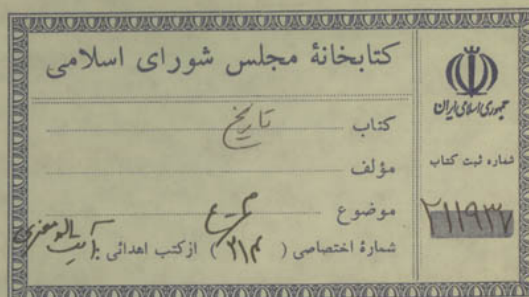 کتابخانهٔ مجلس شورای اسلامی
کتاب تاریخ
مؤلف
موضوع
شمارهٔ اختصاصی ( ) از کتب اهدائی
جمهوری اسلامی ایران
شماره ثبت کتاب
۲۱۱۹۳۷